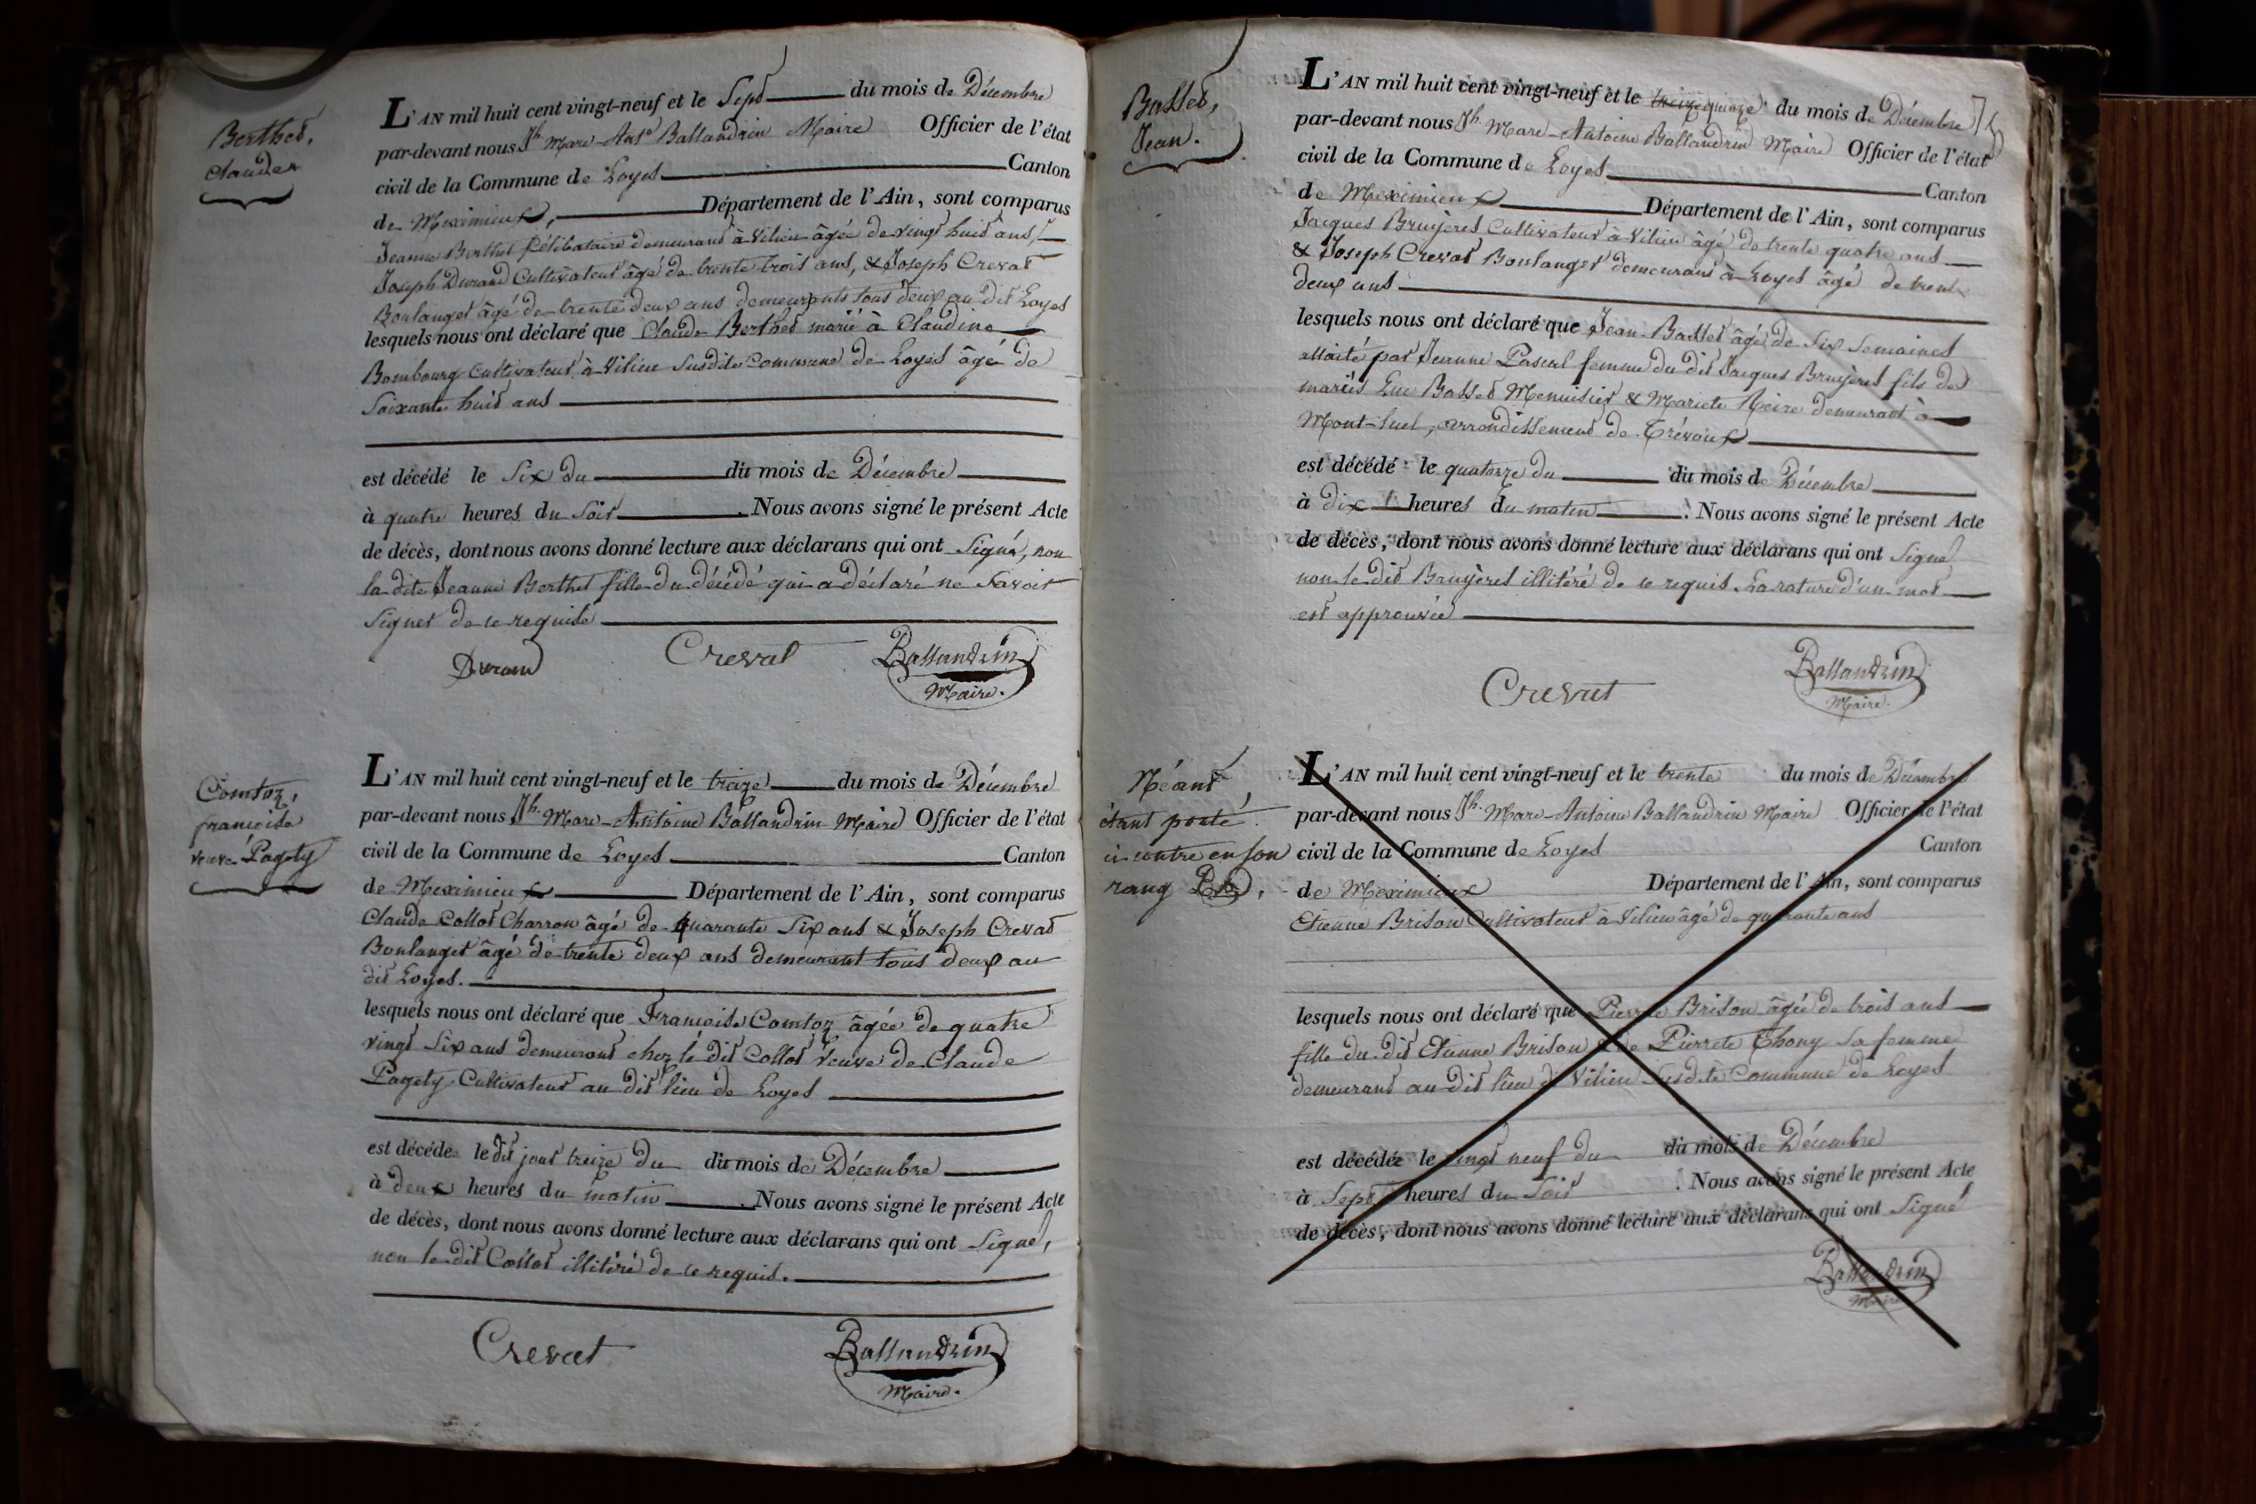 Berthet,
Claude
L'AN mil huit cent vingt-neuf et le Sept du mois de Décembre
par-devant nous Jh. Marc-Ant.e Ballandrin Maire Officier de l'état
civil de la Commune de Loyes Canton
de Meximieux, Département de l'Ain, sont comparus
Jeanne Berthet Célibataire demeurant à Vilieu âgée de vingt huit ans,
Joseph Durand Cultivateur âgé de trente trois ans, & Joseph Crevat
Boulanger âgé de trente deux ans demeurants tous deux au dit Loyes
lesquels nous ont déclaré que Claude Berthet marié à Claudine
Bombourg Cultivateur à Vilieu Susdite Commune de Loyes âgé de
Soixante huit ans
est décédé le Six du du mois de Décembre
à quatre heures du Soir. Nous avons signé le présent Acte
de décès, dont nous avons donné lecture aux déclarans qui ont Signé, non
la dite Jeanne Berthet fille du décédé qui a déclaré ne Savoir
Signer de ce requise
Durand Crevat Ballandrin
Maire.
Comtoz,
francoise
veuve Pagety
L'AN mil huit cent vingt-neuf et le treize du mois de Décembre
par-devant nous Jh. Marc-Antoine Ballandrin Maire Officier de l'état
civil de la Commune de Loyes Canton
de Meximieux Département de l'Ain, sont comparus
Claude Collot Charron âgé de quarante Six ans & Joseph Crevat
Boulanger âgé de trente deux ans demeurant tous deux au
dit Loyes.
lesquels nous ont déclaré que Francoise Comtoz âgée de quatre
vingt Six ans demeurant chez le dit Collot Veuve de Claude
Pagety Cultivateur au dit lieu de Loyes
est décédée le dit jour treize du du mois de Décembre
à deux heures du matin. Nous avons signé le présent Acte
de décès, dont nous avons donné lecture aux déclarans qui ont Signé,
non le dit Collot illitéré de ce requis.
Crevat Ballandrin
Maire.
Basset,
Jean.
L'AN mil huit cent vingt-neuf et le treize quinze du mois de Décembre
par-devant nous Jh. Marc-Antoine Ballandrin Maire Officier de l'état
civil de la Commune de Loyes Canton
de Meximieux Département de l'Ain, sont comparus
Jacques Bruyeres Cultivateur à Vilieu âgé de trente quatre ans
& Joseph Crevat Boulanger demeurant à Loyes âgé de trente
deux ans
lesquels nous ont déclaré que Jean Basset âgé de Six Semaines
allaité par Jeanne Pascal femme du dit Jacques Bruyeres fils de
mariés Luc Basset Menuisier & Mariete demeurant à
Mont-luel, arrondissement de Trévoux
est décédé le quatorze du du mois de Décembre
à dix heures du matin. Nous avons signé le présent Acte
de décès, dont nous avons donné lecture aux déclarans qui ont Signé
non le dit Bruyeres illitéré de ce requis. La rature d'un mot
est approuvée
Crevat Ballandrin
Maire.
Néant,
étant porté
ci-contre en son
rang
L'AN mil huit cent vingt-neuf et le trente du mois de Décembre
par-devant nous Jh. Marc-Antoine Ballandrin Maire Officier de l'état
civil de la Commune de Loyes Canton
de Meximieux Département de l'Ain, sont comparus
Etienne Brison Cultivateur à Vilieu âgé de quarante ans
lesquels nous ont déclaré que Pierrete Brison âgée de trois ans
fille du dit Etienne Brison & de Pierrete Thony sa femme
demeurant au dit lieu de Vilieu Susdite Commune de Loyes
est décédée le vingt neuf du du mois de Décembre
à Sept heures du Soir. Nous avons signé le présent Acte
de décès, dont nous avons donné lecture aux déclarans qui ont Signé
Ballandrin
Maire